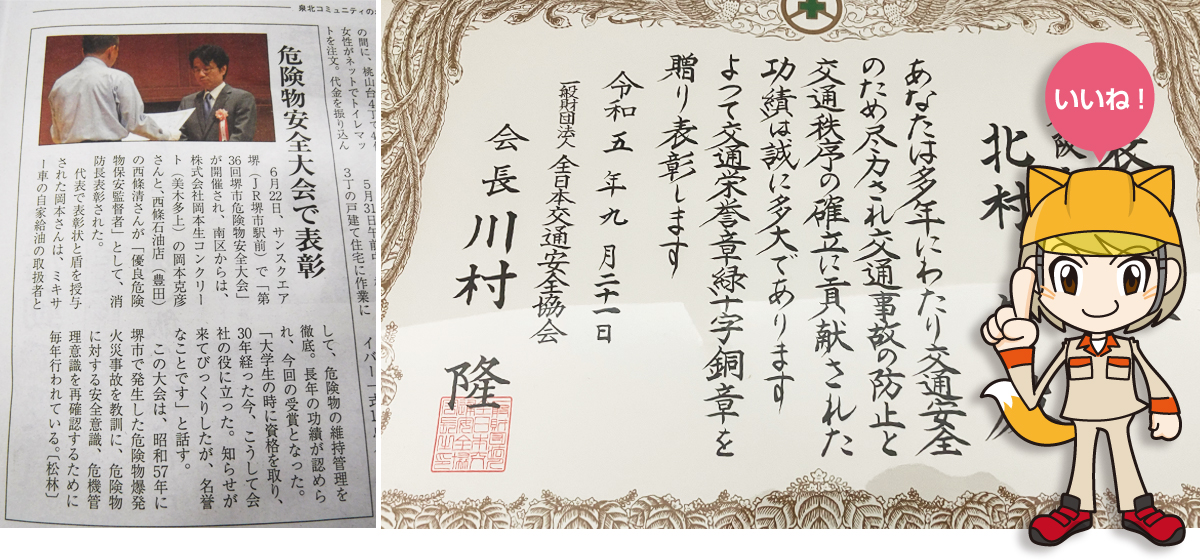 泉北コミュニティの
の間に、桃山台4丁で4
女性がネットでトイレマッ
トを注文。代金を振り込ん
5月31日午前
3丁の戸建て住宅に作業に
危険物安全大会で表彰
6月22日、サンスクエア
堺（JR堺市駅前）で「第
36回堺市危険物安全大会」
が開催され、南区からは、
株式会社岡本生コンクリー
ト（美木多上）の岡本克彦
さんと、西條石油店（豊田）
の西條清さんが「優良危険
物保安監督者」として、消
防長表彰された。
代表で表彰状と盾を授与
された岡本さんは、ミキサ
ー車の自家給油の取扱者と
して、危険物の維持管理を
徹底。長年の功績が認めら
れ、今回の受賞となった。
「大学生の時に資格を取り、
30年経った今、こうして会
社の役に立った。知らせが
来てびっくりしたが、名誉
なことです」と話す。
この大会は、昭和57年に
堺市で発生した危険物爆発
火災事故を教訓に、危険物
に対する安全意識、危機管
理意識を再確認するために
毎年行われている。［松林］
北村
あなたは多年にわたり交通安全
のため尽力され交通事故の防止と
交通秩序の確立に貢献された
功績は誠に多大であります
よつて交通栄誉章緑十字銅章を
贈り表彰します
令和五年九月二十一日
一般財団法人 全日本交通安全協会
会長 川村 隆
いいね！